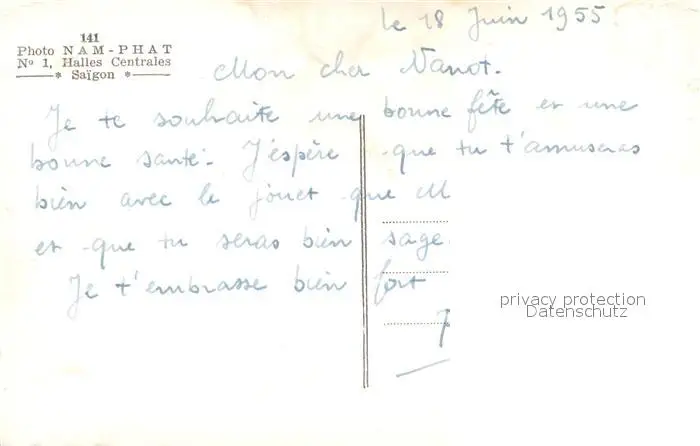 le 18 Juin 1955
141
Photo NAM-PHAT
Nº 1, Halles Centrales
* Saïgon *
Mon cher Nanot.
Je te souhaite une bonne fête et une
bonne santé. J'éspère que tu t'amuseras
bien avec le jouet que M
et que tu seras bien sage
Je t'embrasse bien fort
privacy protection
Datenschutz